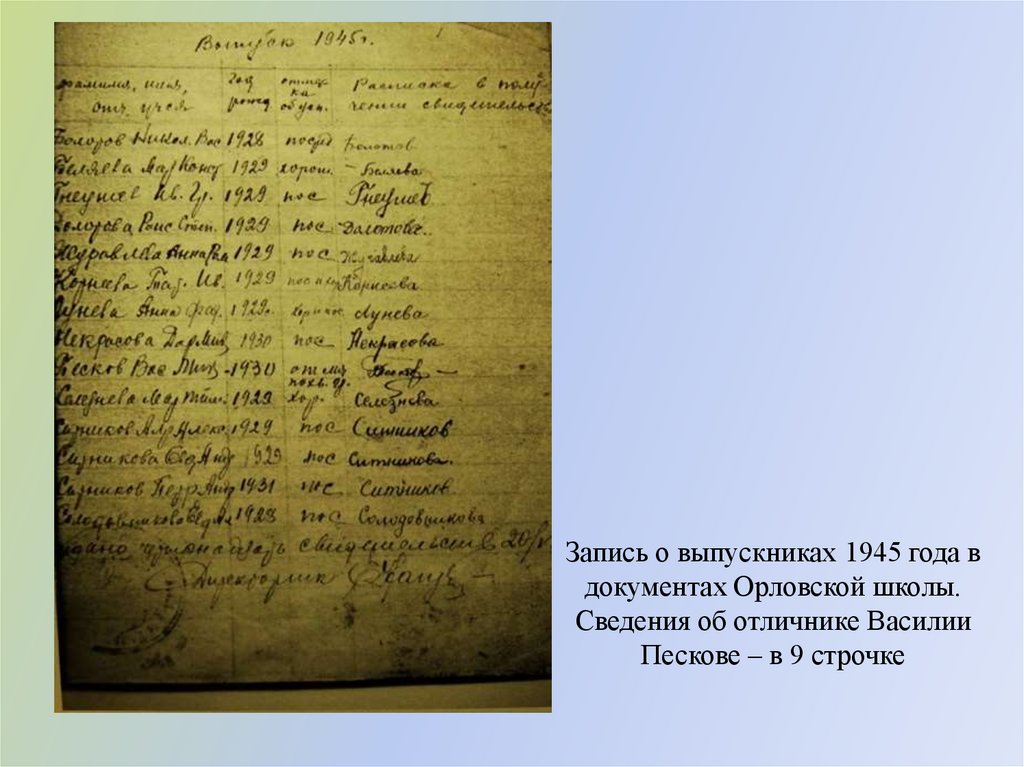 Выпуск 1945г.
фамилия, имя, год отмет Расписка в полу
отч. уч-ся рожд ка об усп. чении свидетельств
Болотов Никол. Вас 1928 посред Болотов
Беляева Мар Конст 1929 хорош. Беляева
Гнеушев Ив. Гр. 1929 пос Гнеушевъ
Степ. 1929 пос
Журавлева Анна 1929 пос Журавлева
Корнеева Тат. Ив. 1929 пос Корнеева
Лунева Анна Фед. 1929г. Лунева
Некрасова Дар Мит 1930 пос Некрасова
Песков Вас Мит 1930
похв. гр.
Селезнева Мар Тим. 1929 хор. Селезнева
Ситников Алр Алекс. 1929 пос Ситников
Ситникова Евд Анд 1929 пос Ситникова.
Ситников Петр Анд 1931 пос Ситников
Солодовникова 1928 пос Солодовникова
свидетельств 20/V
Директор
Запись о выпускниках 1945 года в
документах Орловской школы.
Сведения об отличнике Василии
Пескове – в 9 строчке